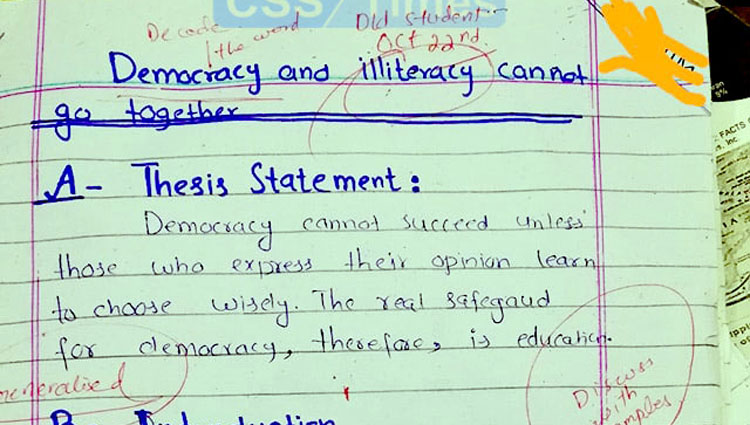 CSS Times
Decode the word
Old student
Oct 22nd
Democracy and illiteracy cannot
go together
A- Thesis Statement:
Democracy cannot succeed unless
those who express their opinion learn
to choose wisely. The real safegaud
for democracy, therefore, is education.
generalised
Discuss
with
FACTS
Inc